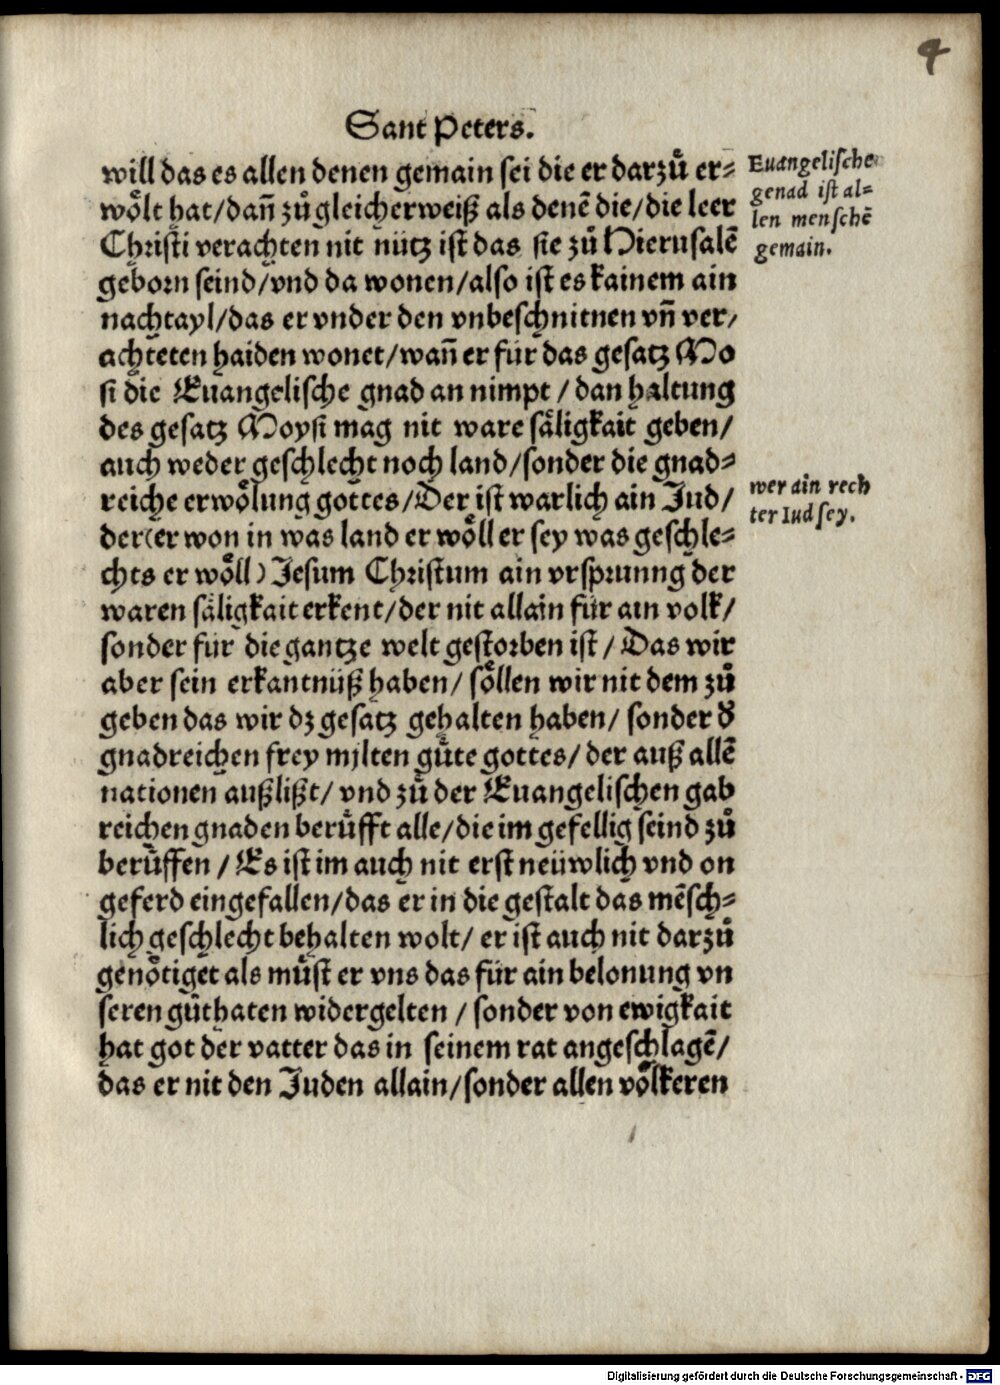 4
Sant Peters.
will das es allen denen gemain sei die er darzuͦ er⸗
woͤlt hat/dañ zuͦ gleicherweiß als denē die/die leer
Christi verachten nit nütz ist das sie zuͦ Hierusalē
geborn seind/vnd da wonen/also ist es kainem ain
nachtayl/das er vnder den vnbeschnitnen vñ ver/
achteten haiden wonet/wañ er für das gesatz Mo
si die Euangelische gnad an nimpt / dan haltung
des gesatz Moysi mag nit ware saͤligkait geben/
auch weder geschlecht noch land/sonder die gnad⸗
reiche erwoͤlung gottes/Der ist warlich ain Jud/
der(er won in was land er woͤll er sey was geschle⸗
chts er woͤll) Jesum Christum ain vrsprunng der
waren saͤligkait erkent/der nit allain für ain volk/
sonder für die gantze welt gestorben ist / Das wir
aber sein erkantnüß haben/ soͤllen wir nit dem zuͦ
geben das wir dz gesatz gehalten haben/ sonder d̕
gnadreichen frey mjlten guͤte gottes/ der auß allē
nationen außlißt/ vnd zuͦ der Euangelischen gab
reichen gnaden beruͤfft alle/die im gefellig seind zuͦ
beruͤffen / Es ist im auch nit erst neüwlich vnd on
geferd eingefallen/das er in die gestalt das mēsch⸗
lich geschlecht behalten wolt/ er ist auch nit darzuͦ
genoͤtiget als muͤst er vns das für ain belonung vn
seren guͤthaten widergelten / sonder von ewigkait
hat got der vatter das in seinem rat angeschlagē/
das er nit den Juden allain/sonder allen voͤlkeren
Euangelische
genad ist al⸗
len menschē
gemain.
wer ain rech
ter Iud sey.
Digitalisierung gefördert durch die Deutsche Forschungsgemeinschaft - DFG